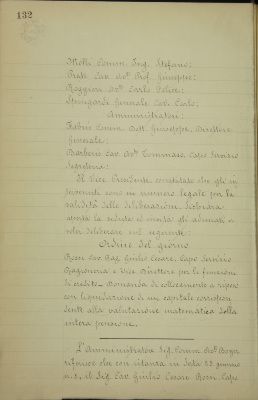 132
Molli Comm. Ing. Stefano;
Prato Cav. Avv. Prof. Giuseppe;
Raggiera Avv. Carlo Felice;
Generale Cav. Carlo;
Amministratori:
Fabris Comm. Dott. Giuseppe, Direttore
Generale;
Barberis Cav. Avv. Tommaso, Capo Servizio
Segreteria;
Il Vice Presidente, constatato che gli in-
tervenuti sono in numero legale per la
validità delle deliberazioni, dichiara
aperta la seduta ed invita gli adunati a
voler deliberare sul seguente
Ordine del giorno
Rossi Cav. Rag. Giulio Cesare, Capo Servizio
Ragioneria e Vice Direttore per le funzioni
di credito. Domanda di collocamento a riposo
con liquidazione di un capitale corrispon-
dente alla valutazione matematica della
intera pensione.
L'Amministratore Sig. Comm. Avv.
riferisce che con istanza in data 23 giugno
il Sig. Cav. Giulio Cesare Rossi, Capo